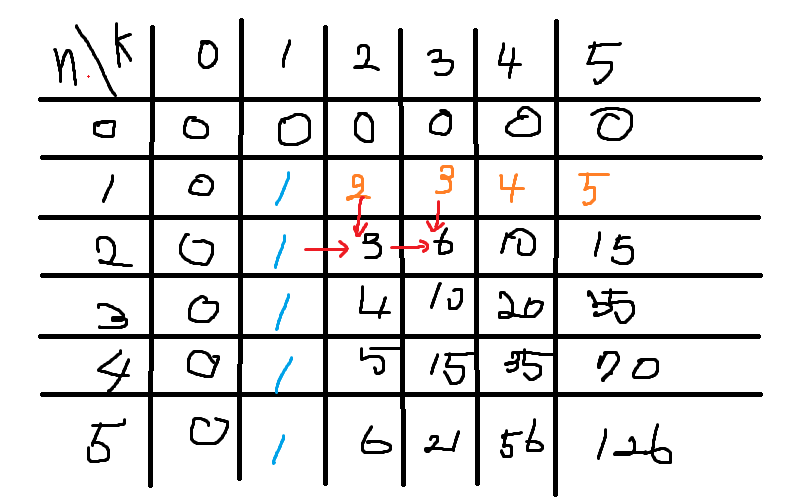 n\k 0 1 2 3 4 5
0 0 0 0 0 0 0
1 0 1 2 3 4 5
2 0 1 3 6 10 15
3 0 1 4 10 20 35
4 0 1 5 15 35 70
5 0 1 6 21 56 126